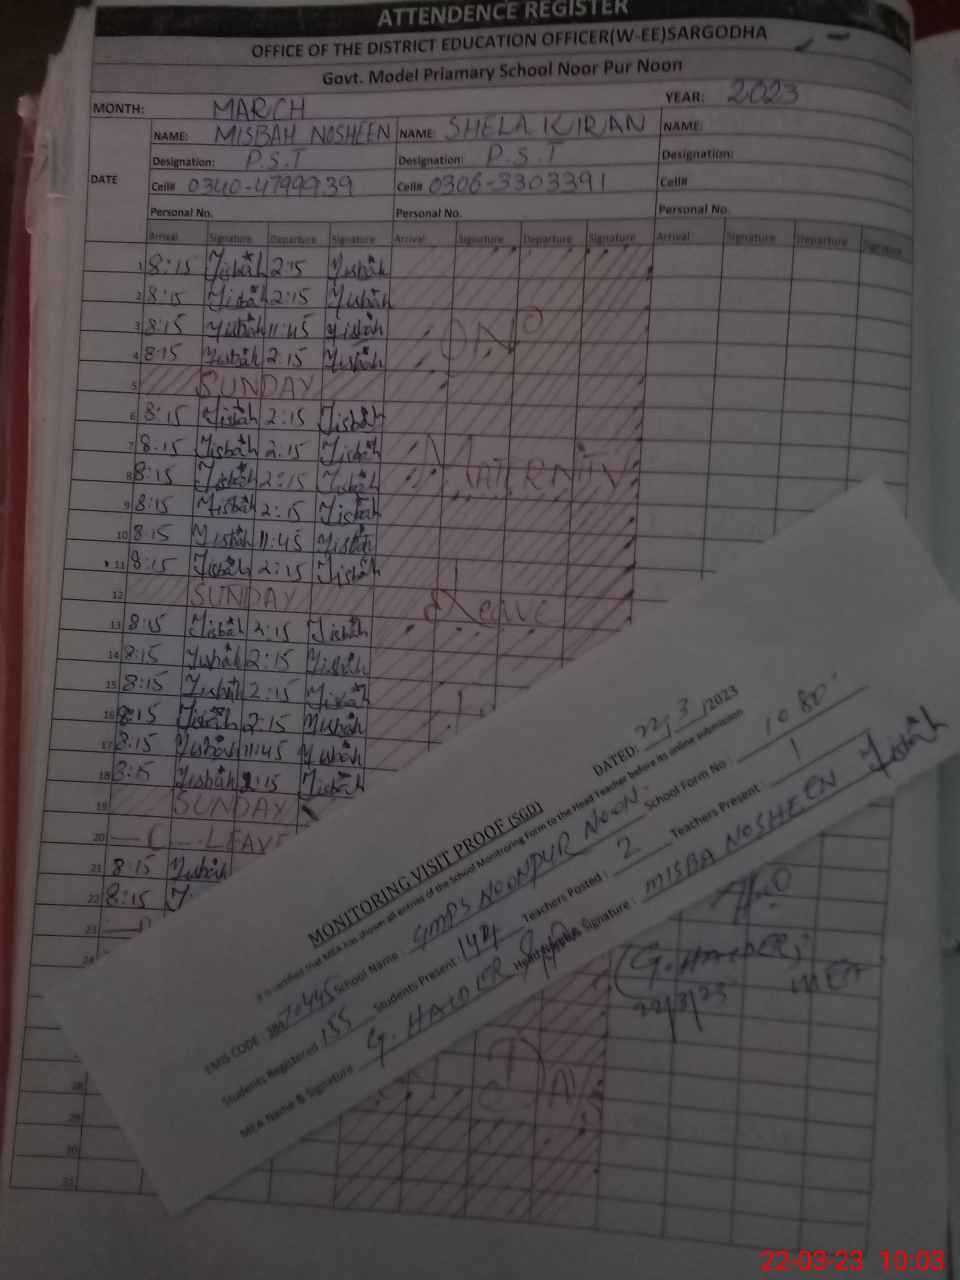 ATTENDENCE REGISTER
OFFICE OF THE DISTRICT EDUCATION OFFICER(W-EE)SARGODHA
Govt. Model Priamary School Noor Pur Noon
MONTH: MARCH YEAR: 2023
DATE NAME: MISBAH NOSHEEN NAME: SHELA KIRAN NAME:
Designation: P.S.T Designation: P.S.T Designation:
Cell# 0340-4799939 Cell# 0306-3303391 Cell#
Personal No. Personal No. Personal No.
Arrival Signature Departure Signature Arrival Signature Departure Signature Arrival Signature Departure Signature
1 8:15 Misbah 2:15 Misbah
2 8:15 Misbah 2:15 Misbah
3 8:15 Misbah 11:45 Misbah ON
4 8:15 Misbah 2:15 Misbah
5 SUNDAY
6 8:15 Misbah 2:15 Misbah
7 8:15 Misbah 2:15 Misbah
8 8:15 Misbah 2:15 Misbah MATERNITY
9 8:15 Misbah 2:15 Misbah
10 8:15 Misbah 11:45 Misbah
11 8:15 Misbah 2:15 Misbah
12 SUNDAY Leave
13 8:15 Misbah 2:15 Misbah
14 8:15 Misbah 2:15 Misbah
15 8:15 Misbah 2:15 Misbah
16 8:15 Misbah 2:15 Misbah
17 8:15 Misbah 11:45 Misbah
18 8:15 Misbah 2:15 Misbah
19 SUNDAY
20 C LEAVE
21 8:15 Misbah
22 8:15
23
24
28
29
30
31
DATED: 22/3/2023
MONITORING VISIT PROOF (SGD)
It is certified that MEA has shown all entries of the School Monitoring Form to the Head Teacher before its online submission
EMIS CODE: 38470445 School Name: GMPS NOONPUR NOON. School Form No: 1080
Students Registered 155 Students Present: 144 Teachers Posted: 2 Teachers Present: 1
MEA Name & Signature G. HAIDER Signature: MISBA NOSHEEN Misbah
G. HAIDER,
MEA
22/3/23
22-03-23 10:03